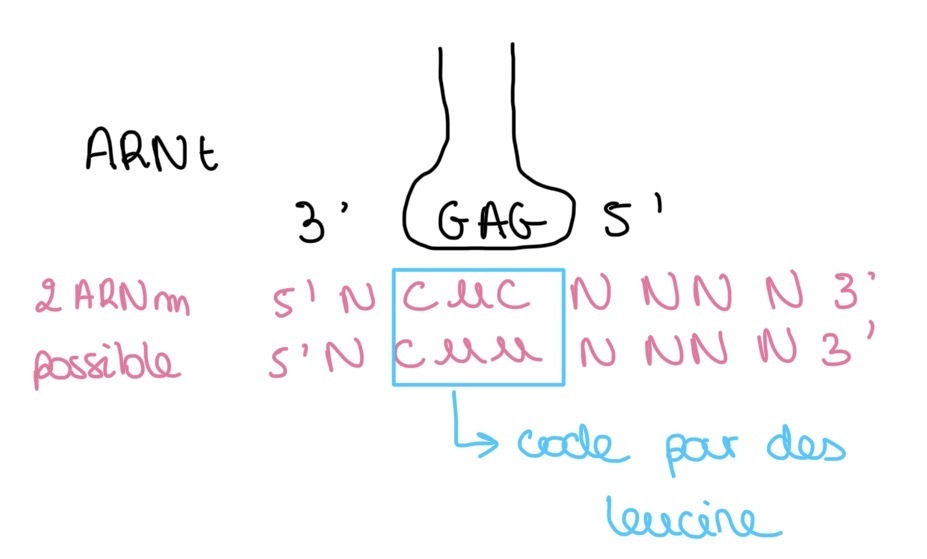 ARNt
3' GAG 5'
2 ARNm 5' N CUC N N N N 3'
possible 5' N CUU N N N N 3'
code par des
leucine